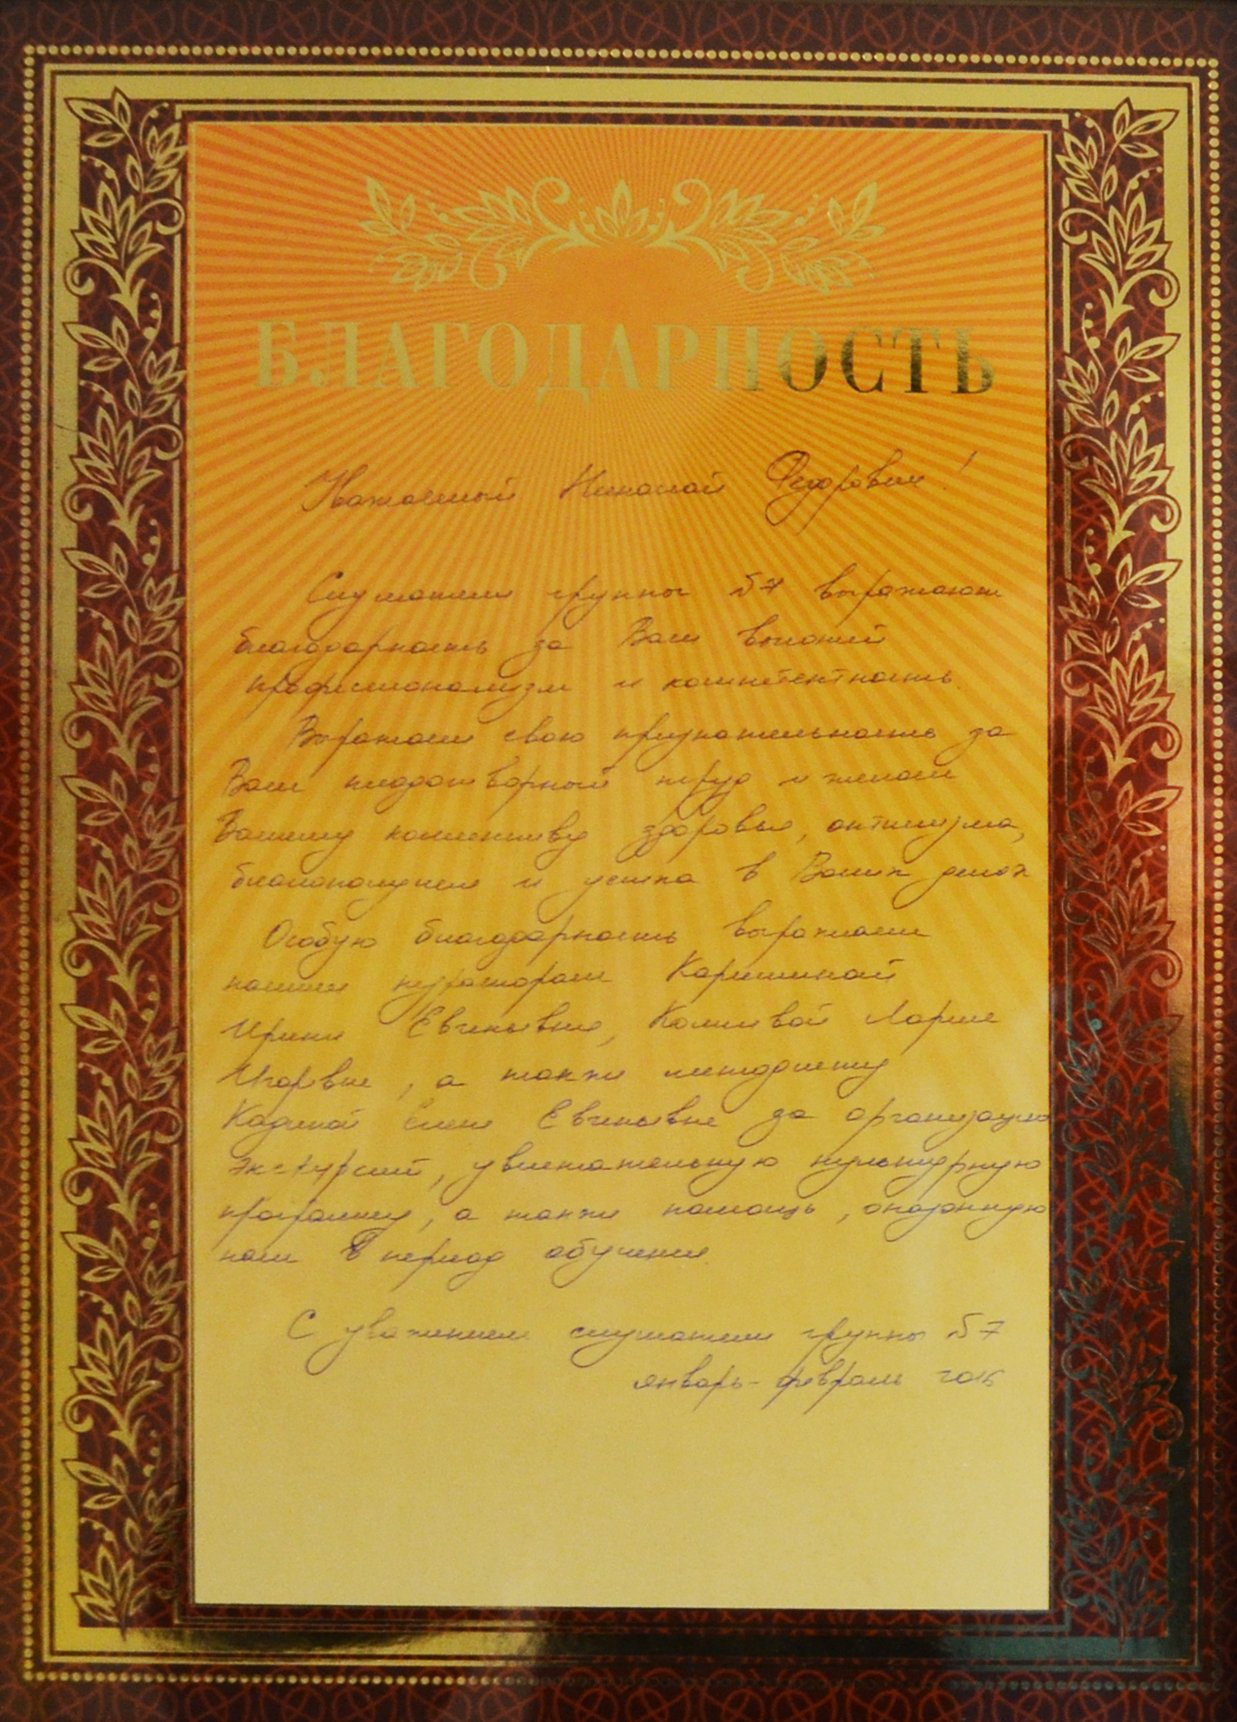 БЛАГОДАРНОСТЬ
Уважаемый Николай Федорович!
Слушатели группы 57 выражают
благодарность за Ваш высокий
профессионализм и компетентность.
Выражаем свою признательность за
Ваш плодотворный труд и желаем
Вашему коллективу здоровья, оптимизма,
благополучия и успеха в Ваших делах
Особую благодарность выражаем
нашим кураторам
Ирине Евгеньевне, Ларисе
Игоревне, а также методисту
Елене Евгеньевне за организацию
экскурсий, увлекательную культурную
программу, а также помощь, оказанную
нам в период обучения.
С уважением слушатели группы 57
январь-февраль